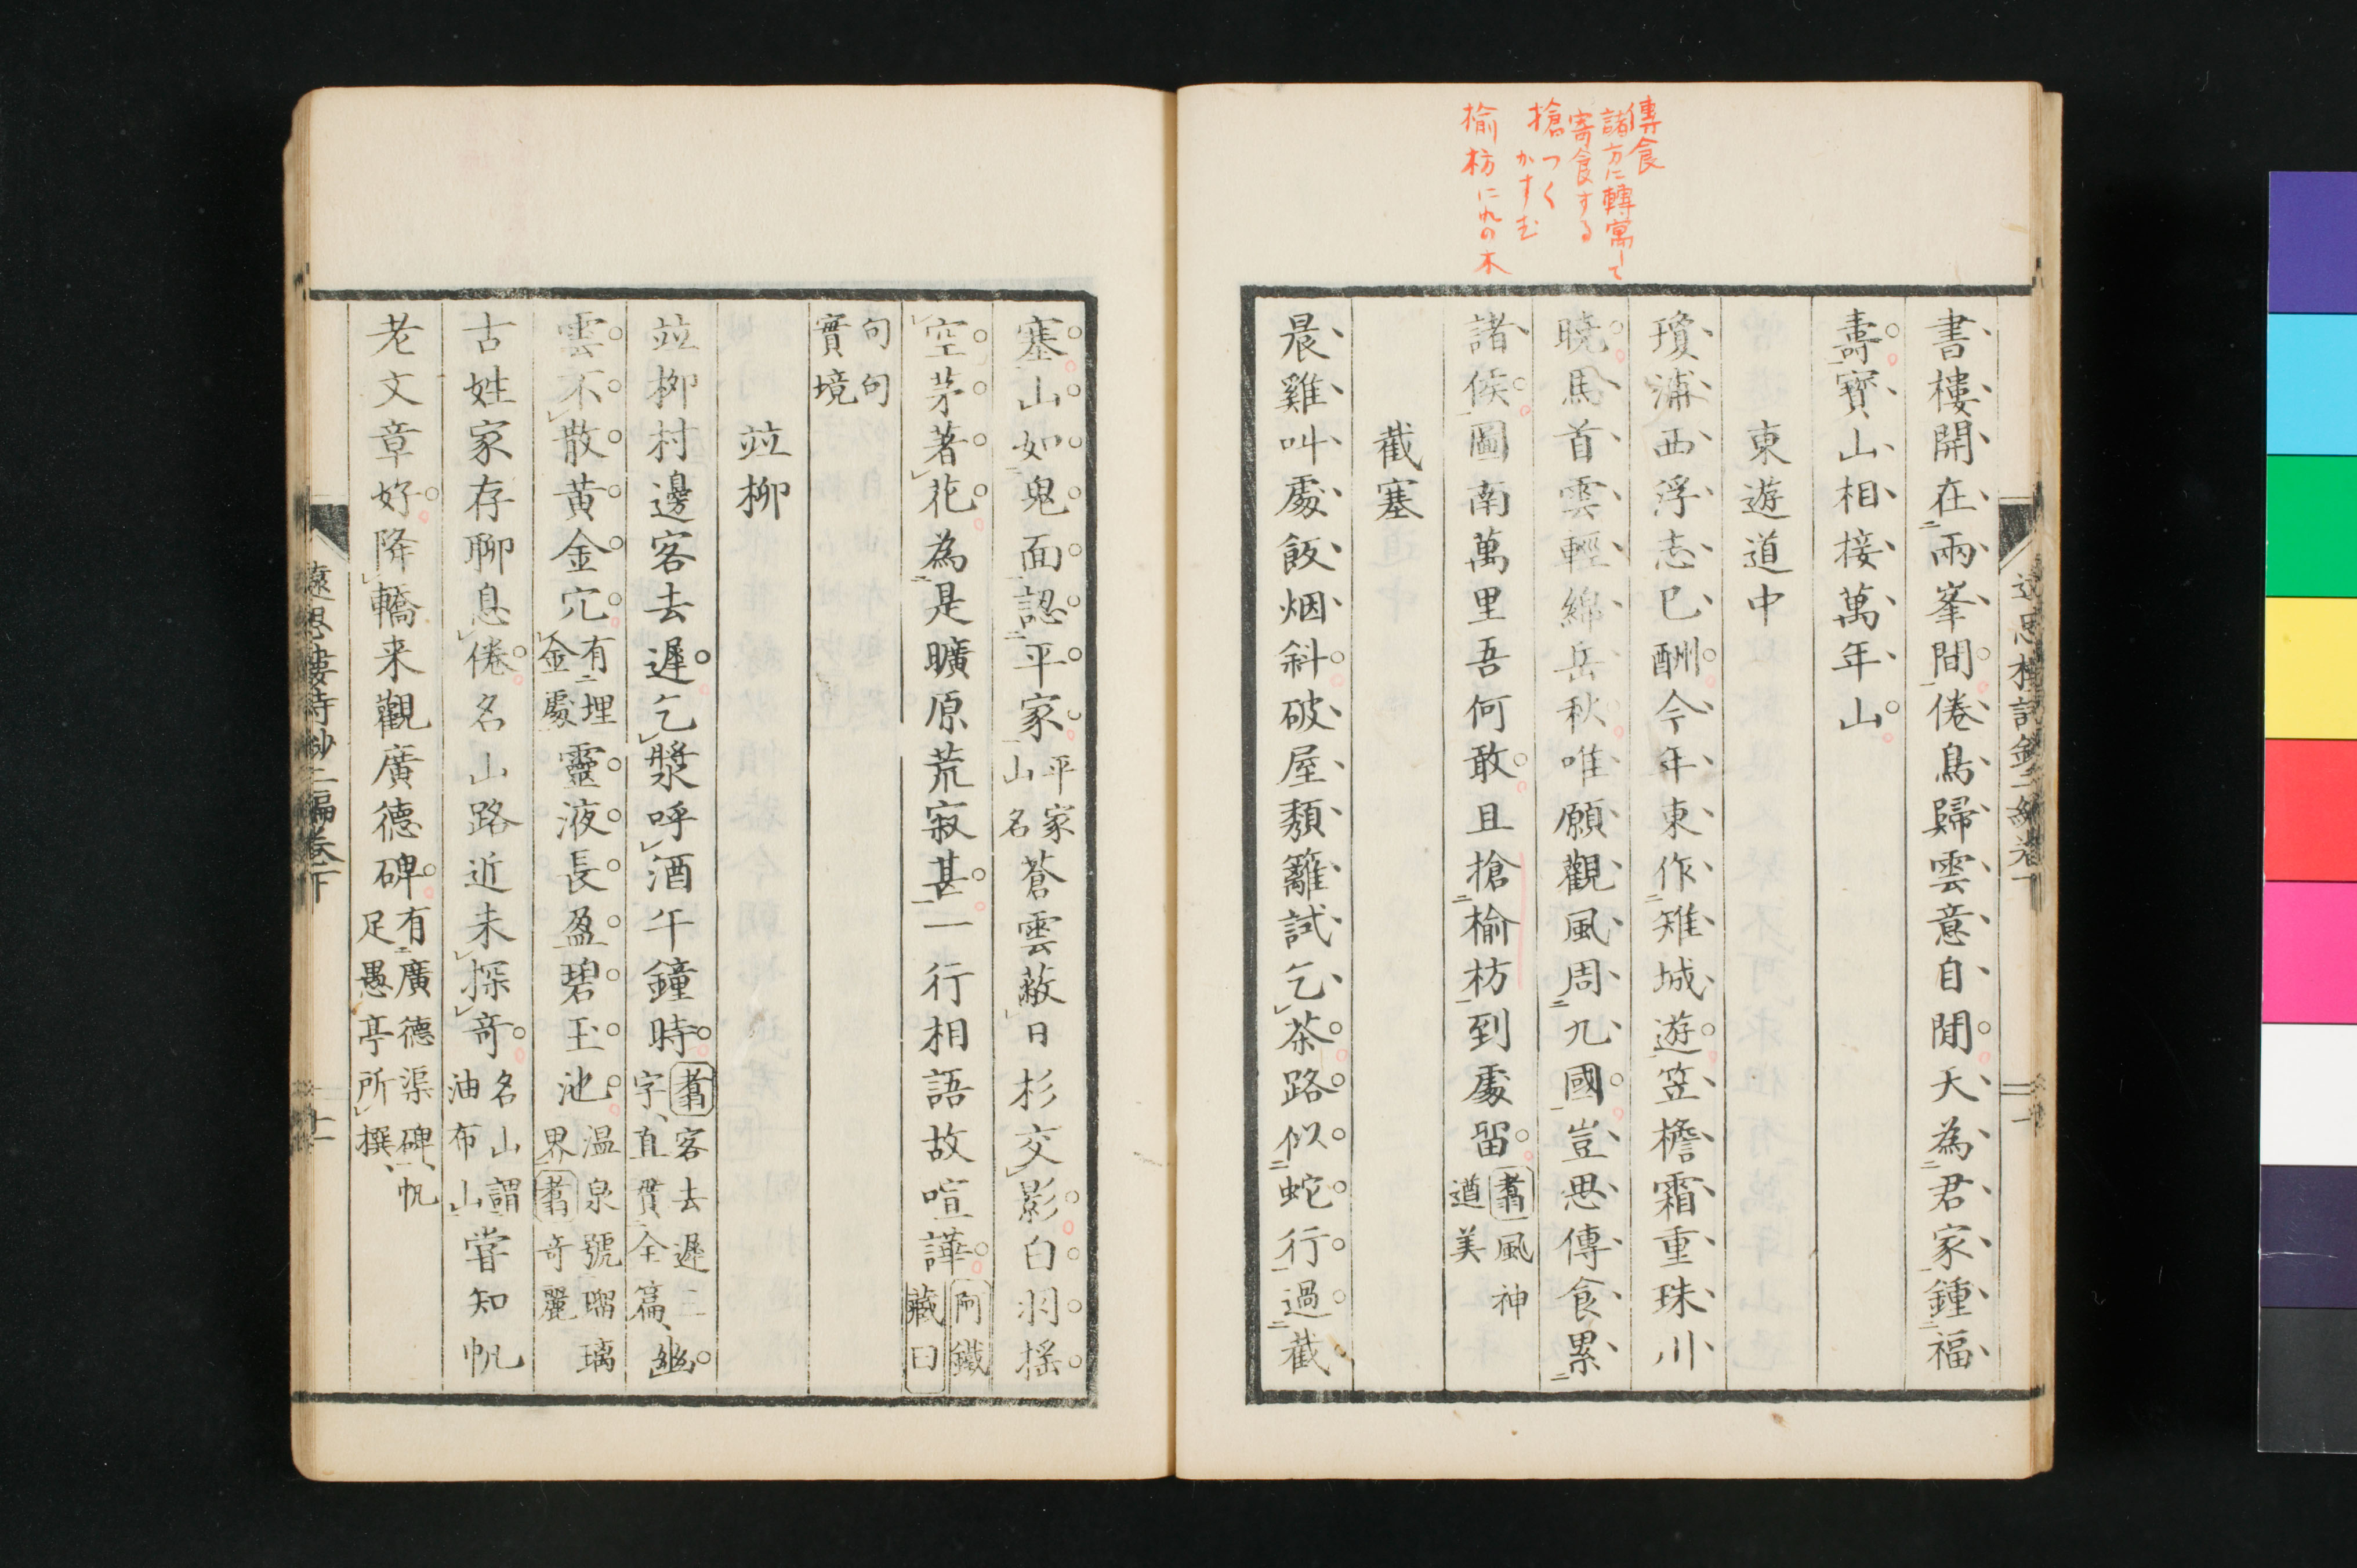 傳食
諸方に轉寓して
寄食する
搶つく
かすむ
榆枋にれの木
書樓開在兩峯間倦鳥歸雲意自閒天為君家鍾福
壽寶山相接萬年山
東遊道中
瓊浦西浮志已酬今年東作雉城遊笠檐霜重珠川
曉馬首雲輕綿岳秋唯願觀風周九國豈思傳食累
諸侯圖南萬里吾何敢且搶榆枋到處留
翥風神
遒美
截塞
晨雞叫處飯烟斜破屋頽籬試乞茶路似蛇行過截
塞山如鬼面認平家
平家
山名
蒼雲蔽日杉交影白羽搖
空茅著花為是曠原荒寂甚一行相語故喧譁
藏曰
句句
實境
竝柳
竝柳村邊客去遲乞漿呼酒午鐘時
翥客去遲三
字直貫全篇
幽
雲不散黄金穴
有埋
金處
靈液長盈碧玉池
温泉號瑠璃
界翥奇麗
古姓家存聊息倦名山路近未探奇
名山謂
油布山
嘗知帆
老文章好降轎来觀廣德碑
有廣德渠碑帆
足愚亭所撰
遠思樓詩鈔二編卷下